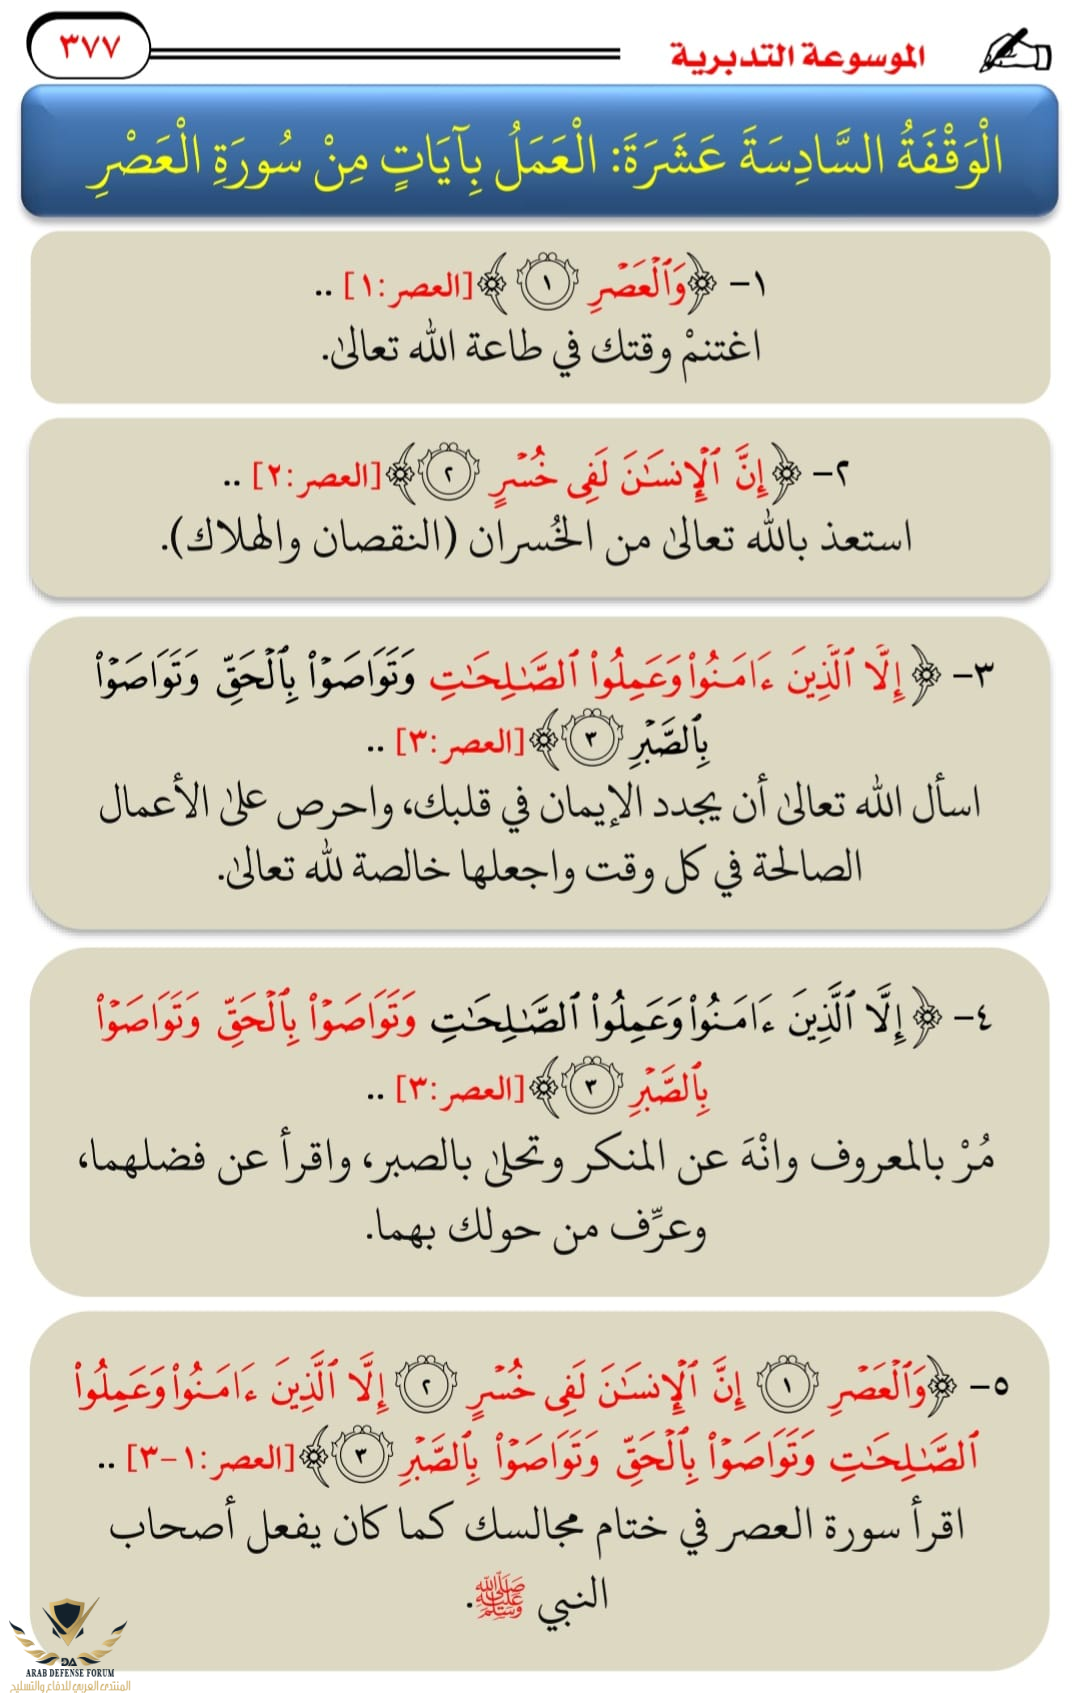 الموسوعة التدبرية
٣٧٧
الْوَقْفَةُ السَّادِسَةَ عَشَرَةَ: الْعَمَلُ بِآيَاتٍ مِنْ سُورَةِ الْعَصْرِ
١- ﴿وَٱلْعَصْرِ ١﴾ [العصر:١] ..
اغتنمْ وقتك في طاعة الله تعالىٰ.
٢- ﴿إِنَّ ٱلْإِنسَٰنَ لَفِى خُسْرٍ ٢﴾ [العصر:٢] ..
استعذ بالله تعالىٰ من الخُسران (النقصان والهلاك).
٣- ﴿إِلَّا ٱلَّذِينَ ءَامَنُوا۟ وَعَمِلُوا۟ ٱلصَّٰلِحَٰتِ وَتَوَاصَوْا۟ بِٱلْحَقِّ وَتَوَاصَوْا۟
بِٱلصَّبْرِ ٣﴾ [العصر:٣] ..
اسأل الله تعالىٰ أن يجدد الإيمان في قلبك، واحرص علىٰ الأعمال
الصالحة في كل وقت واجعلها خالصة لله تعالىٰ.
٤- ﴿إِلَّا ٱلَّذِينَ ءَامَنُوا۟ وَعَمِلُوا۟ ٱلصَّٰلِحَٰتِ وَتَوَاصَوْا۟ بِٱلْحَقِّ وَتَوَاصَوْا۟
بِٱلصَّبْرِ ٣﴾ [العصر:٣] ..
مُرْ بالمعروف وانْهَ عن المنكر وتحلىٰ بالصبر، واقرأ عن فضلهما،
وعرِّف من حولك بهما.
٥- ﴿وَٱلْعَصْرِ ١ إِنَّ ٱلْإِنسَٰنَ لَفِى خُسْرٍ ٢ إِلَّا ٱلَّذِينَ ءَامَنُوا۟ وَعَمِلُوا۟
ٱلصَّٰلِحَٰتِ وَتَوَاصَوْا۟ بِٱلْحَقِّ وَتَوَاصَوْا۟ بِٱلصَّبْرِ ٣﴾ [العصر:١-٣] ..
اقرأ سورة العصر في ختام مجالسك كما كان يفعل أصحاب
النبي ﷺ.
DA
ARAB DEFENSE FORUM
المنتدى العربي للدفاع والتسليح